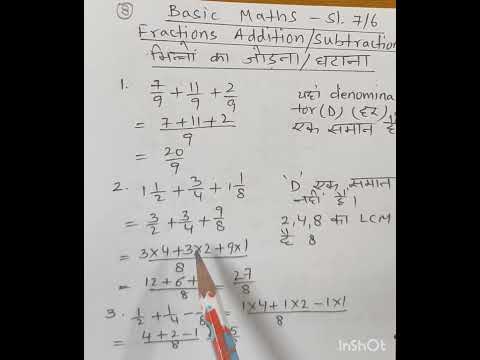 ⑧ Basic Maths - Sl. 7/6
Fractions Addition/Subtraction
भिन्नों का जोड़ना/घटाना
1. 7/9 + 11/9 + 2/9
= 7+11+2/9
= 20/9
यहां denomina
tor (D) (हर)
एक समान है
2. 1 1/2 + 3/4 + 1 1/8
= 3/2 + 3/4 + 9/8
= 3×4+3×2+9×1/8
= 12+6+ /8 = 27/8
'D' एक समान
नहीं है।
2,4,8 का LCM
है 8
3. 1/2 + 1/4 - /8 = 1×4+1×2-1×1/8
= 4+2-1/8
InShOt